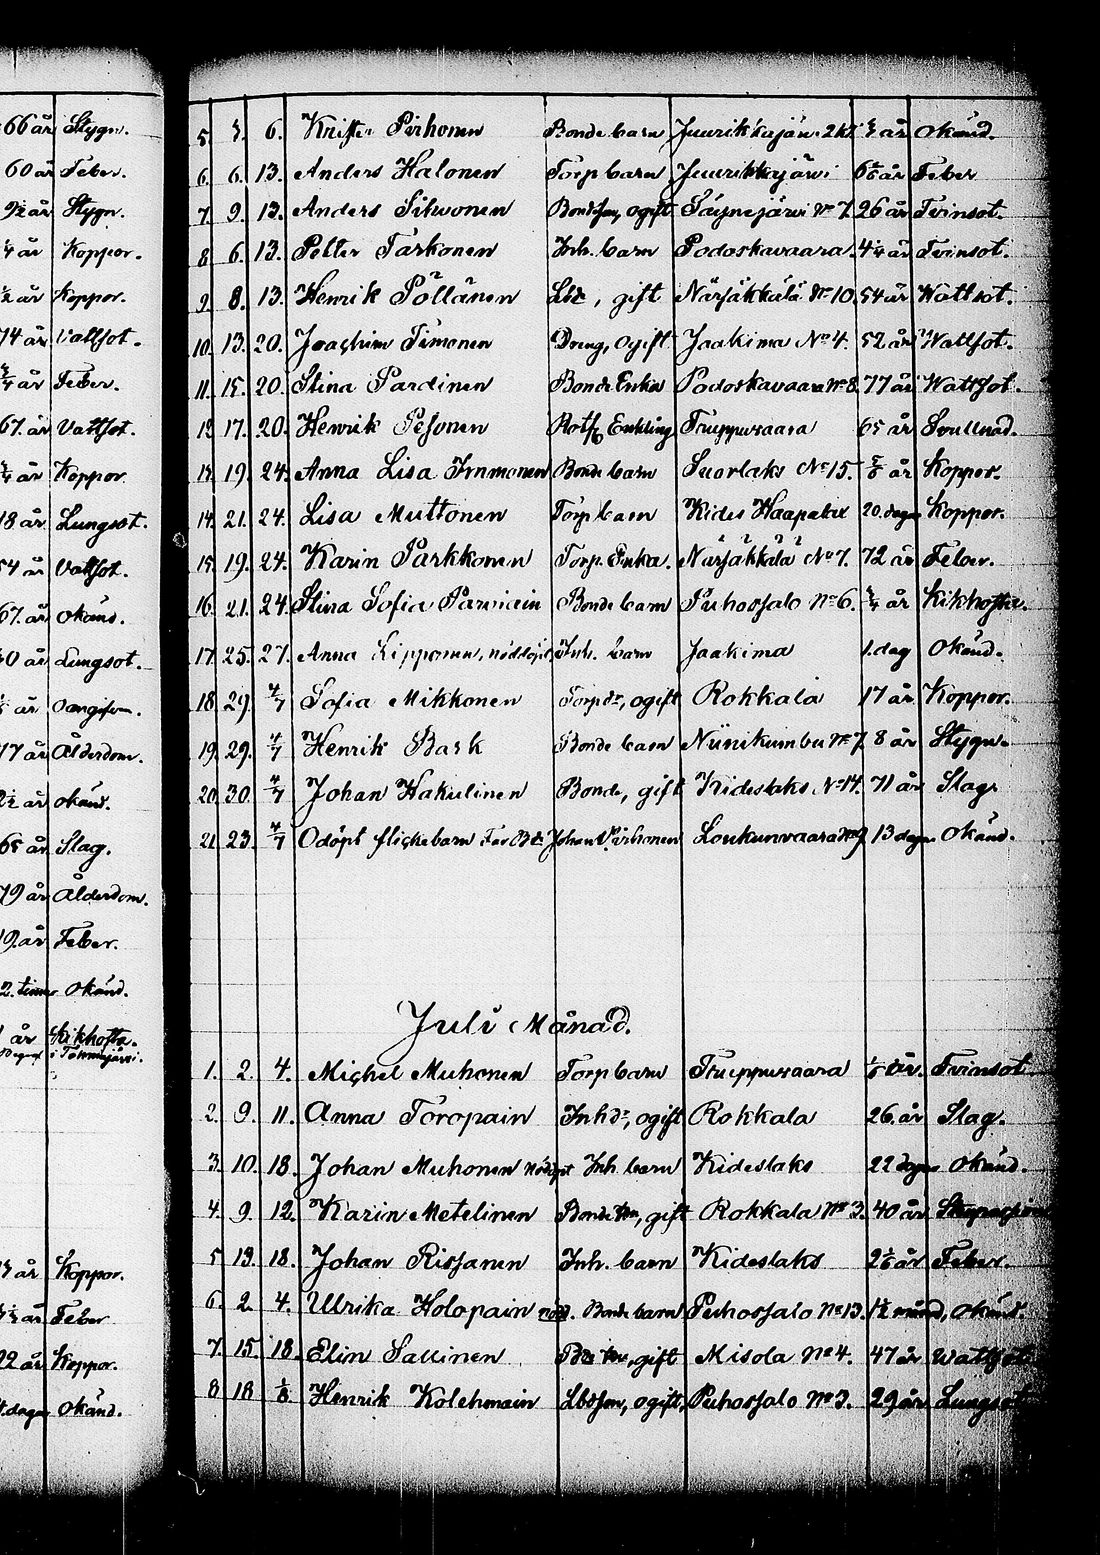 66 år Stygn.
60 år Feber.
9½ år Stygn.
¼ år Koppor.
½ år Koppor.
74 år Vattsot.
¾ år Feber.
67. år Vattsot.
¾ år Koppor
18 år Lungsot.
54 år Vattsot.
67. år Okänd.
40 år Lungsot.
år
77 år Ålderdom.
2½ år Okänd.
65 år Slag.
79 år Ålderdom.
19. år Feber.
2. timar Okänd.
1 år Kikhosta.
i Tohmajärvi.
år Koppor.
½ år Feber
22 år Koppor.
dagar Okänd.
5. 6. Krister Pirhonen Bonde barn Juurikkajärvi 2 år Okänd.
6. 6. 13. Anders Halonen Torp barn Juurikkajärvi 6 år Feber
7. 9. 13. Anders Sihvonen Bondson, ogift Täynejärvi No 7. 26 år Tvinsot.
8. 6. 13. Petter Tarkonen Inh. barn Podoskavaara. 4¼ år Tvinsot.
9. 8. 13. Henrik Pöllänen Lbd, gift Närsäkkälä No 10. 54 år Wattsot.
10. 13. 20. Joachim Timonen Dreng, Ogift Jaakima No 4. 52 år Wattsot.
11. 15. 20. Stina Pardinen Bonde Enka Podoskavaara No 8. 77 år Wattsot.
12 17. 20. Henrik Pesonen Enkling Truppuvaara 65 år Svullnad.
13. 19. 24. Anna Lisa Immonen Bonde barn Suorlaks No 15. 5/6 år Koppor.
14. 21. 24. Lisa Muttonen Torp barn Kides Haapalax 20. dagar Koppor.
15. 19. 24. Karin Parkkonen Torp. Enka. Närsäkkälä No 7. 72 år Feber.
16. 21. 24. Stina Sofia Parviain Bonde barn Puhossalo No 6. ¾ år Kikhosta.
17. 25. 27. Anna Lipponen, nöddöpt, Inh. barn Jaakima 1. dag Okänd.
18. 29. 4/7 Sofia Mikkonen Torpdr, ogift Rokkala 17 år Koppor.
19. 29. 4/7 Henrik Bask Bonde barn Niinikumbu No 7. 8 år Stygn.
20. 30. 4/7 Johan Hakulinen Bonde, gift Kideslaks No 14. 71 år Slag.
21 23. 4/7 Odöpt flickebarn Far Bd: Johan Pirhonen Loukunvaara No 9. 13 dagar Okänd.
Juli Månad.
1. 2. 4. Michel Muhonen Torp barn Truppuvaara år. Tvinsot
2. 9. 11. Anna Toropain Inhdr, ogift Rokkala 26. år Slag.
3. 10. 18. Johan Muhonen nödöpt Inh. barn Kideslaks 22 dagar Okänd.
4. 9. 12. Karin Metelinen Bonde hm, gift Rokkala No 3. 40 år
5 13. 18. Johan Rissanen Inh. barn Kideslaks 2 år Feber.
6. 2. 4. Ulrika Holopain nöd. Bonde barn Puhossalo No 13. 1½ månad, Okänd.
7. 15. 18. Elin Sallinen gift Misola No 4. 47 år Wattsot
8 18 1/8 Henrik Kolehmain Lbdson, ogift, Puhossalo No 3. 29 år Lungsot